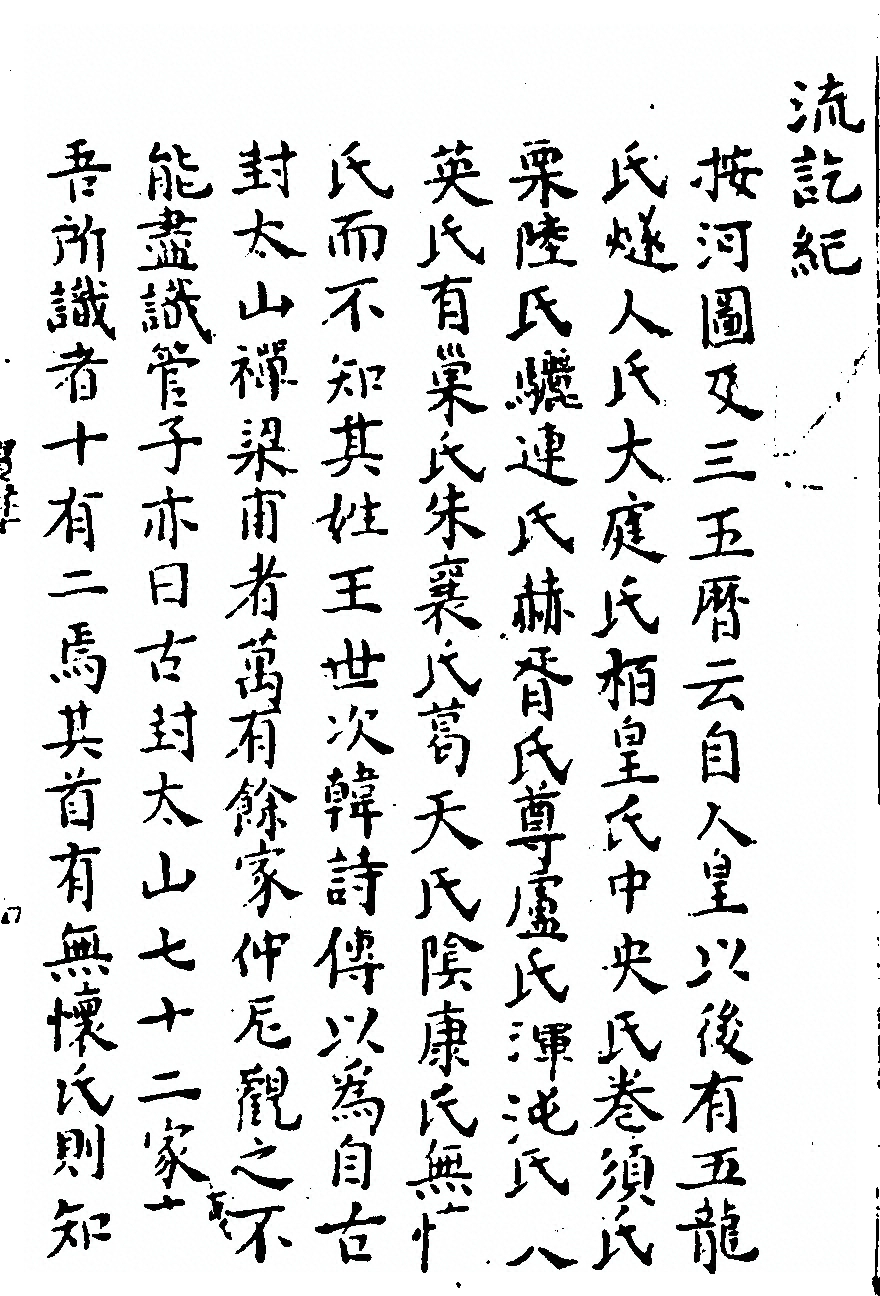 流訖紀
按河圖及三五曆云自人皇以後有五龍
氏燧人氏大庭氏栢皇氏中央氏卷須氏
栗陸氏驪連氏赫胥氏尊盧氏渾沌氏八
英氏有巢氏朱襄氏葛天氏陰康氏無懷
氏而不知其姓王世次韓詩傳以爲自古
封太山禪梁甫者萬有餘家仲尼觀之不
能盡識管子亦曰古封太山七十二家
吾所識者十有二焉其首有無懷氏則知